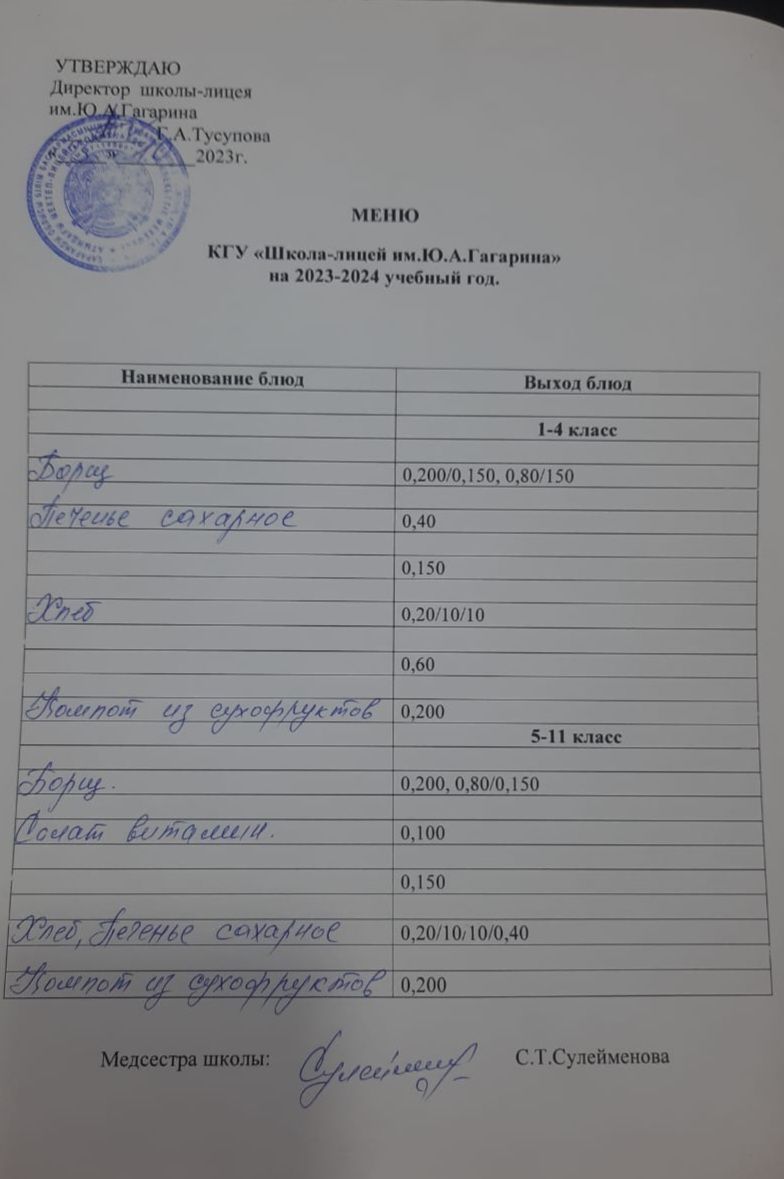 УТВЕРЖДАЮ
Директор школы-лицея
им.Ю.А.Гагарина
Г.А.Тусупова
2023г.
МЕНЮ
КГУ «Школа-лицей им.Ю.А.Гагарина»
на 2023-2024 учебный год.
Наименование блюд Выход блюд
1-4 класс
Борщ 0,200/0,150, 0,80/150
Печенье сахарное 0,40
0,150
Хлеб 0,20/10/10
0,60
Компот из сухофруктов 0,200
5-11 класс
Борщ. 0,200, 0,80/0,150
Солат витамин. 0,100
0,150
Хлеб, Печенье сахарное 0,20/10/10/0,40
Компот из сухофруктов 0,200
Медсестра школы: С.Т.Сулейменова